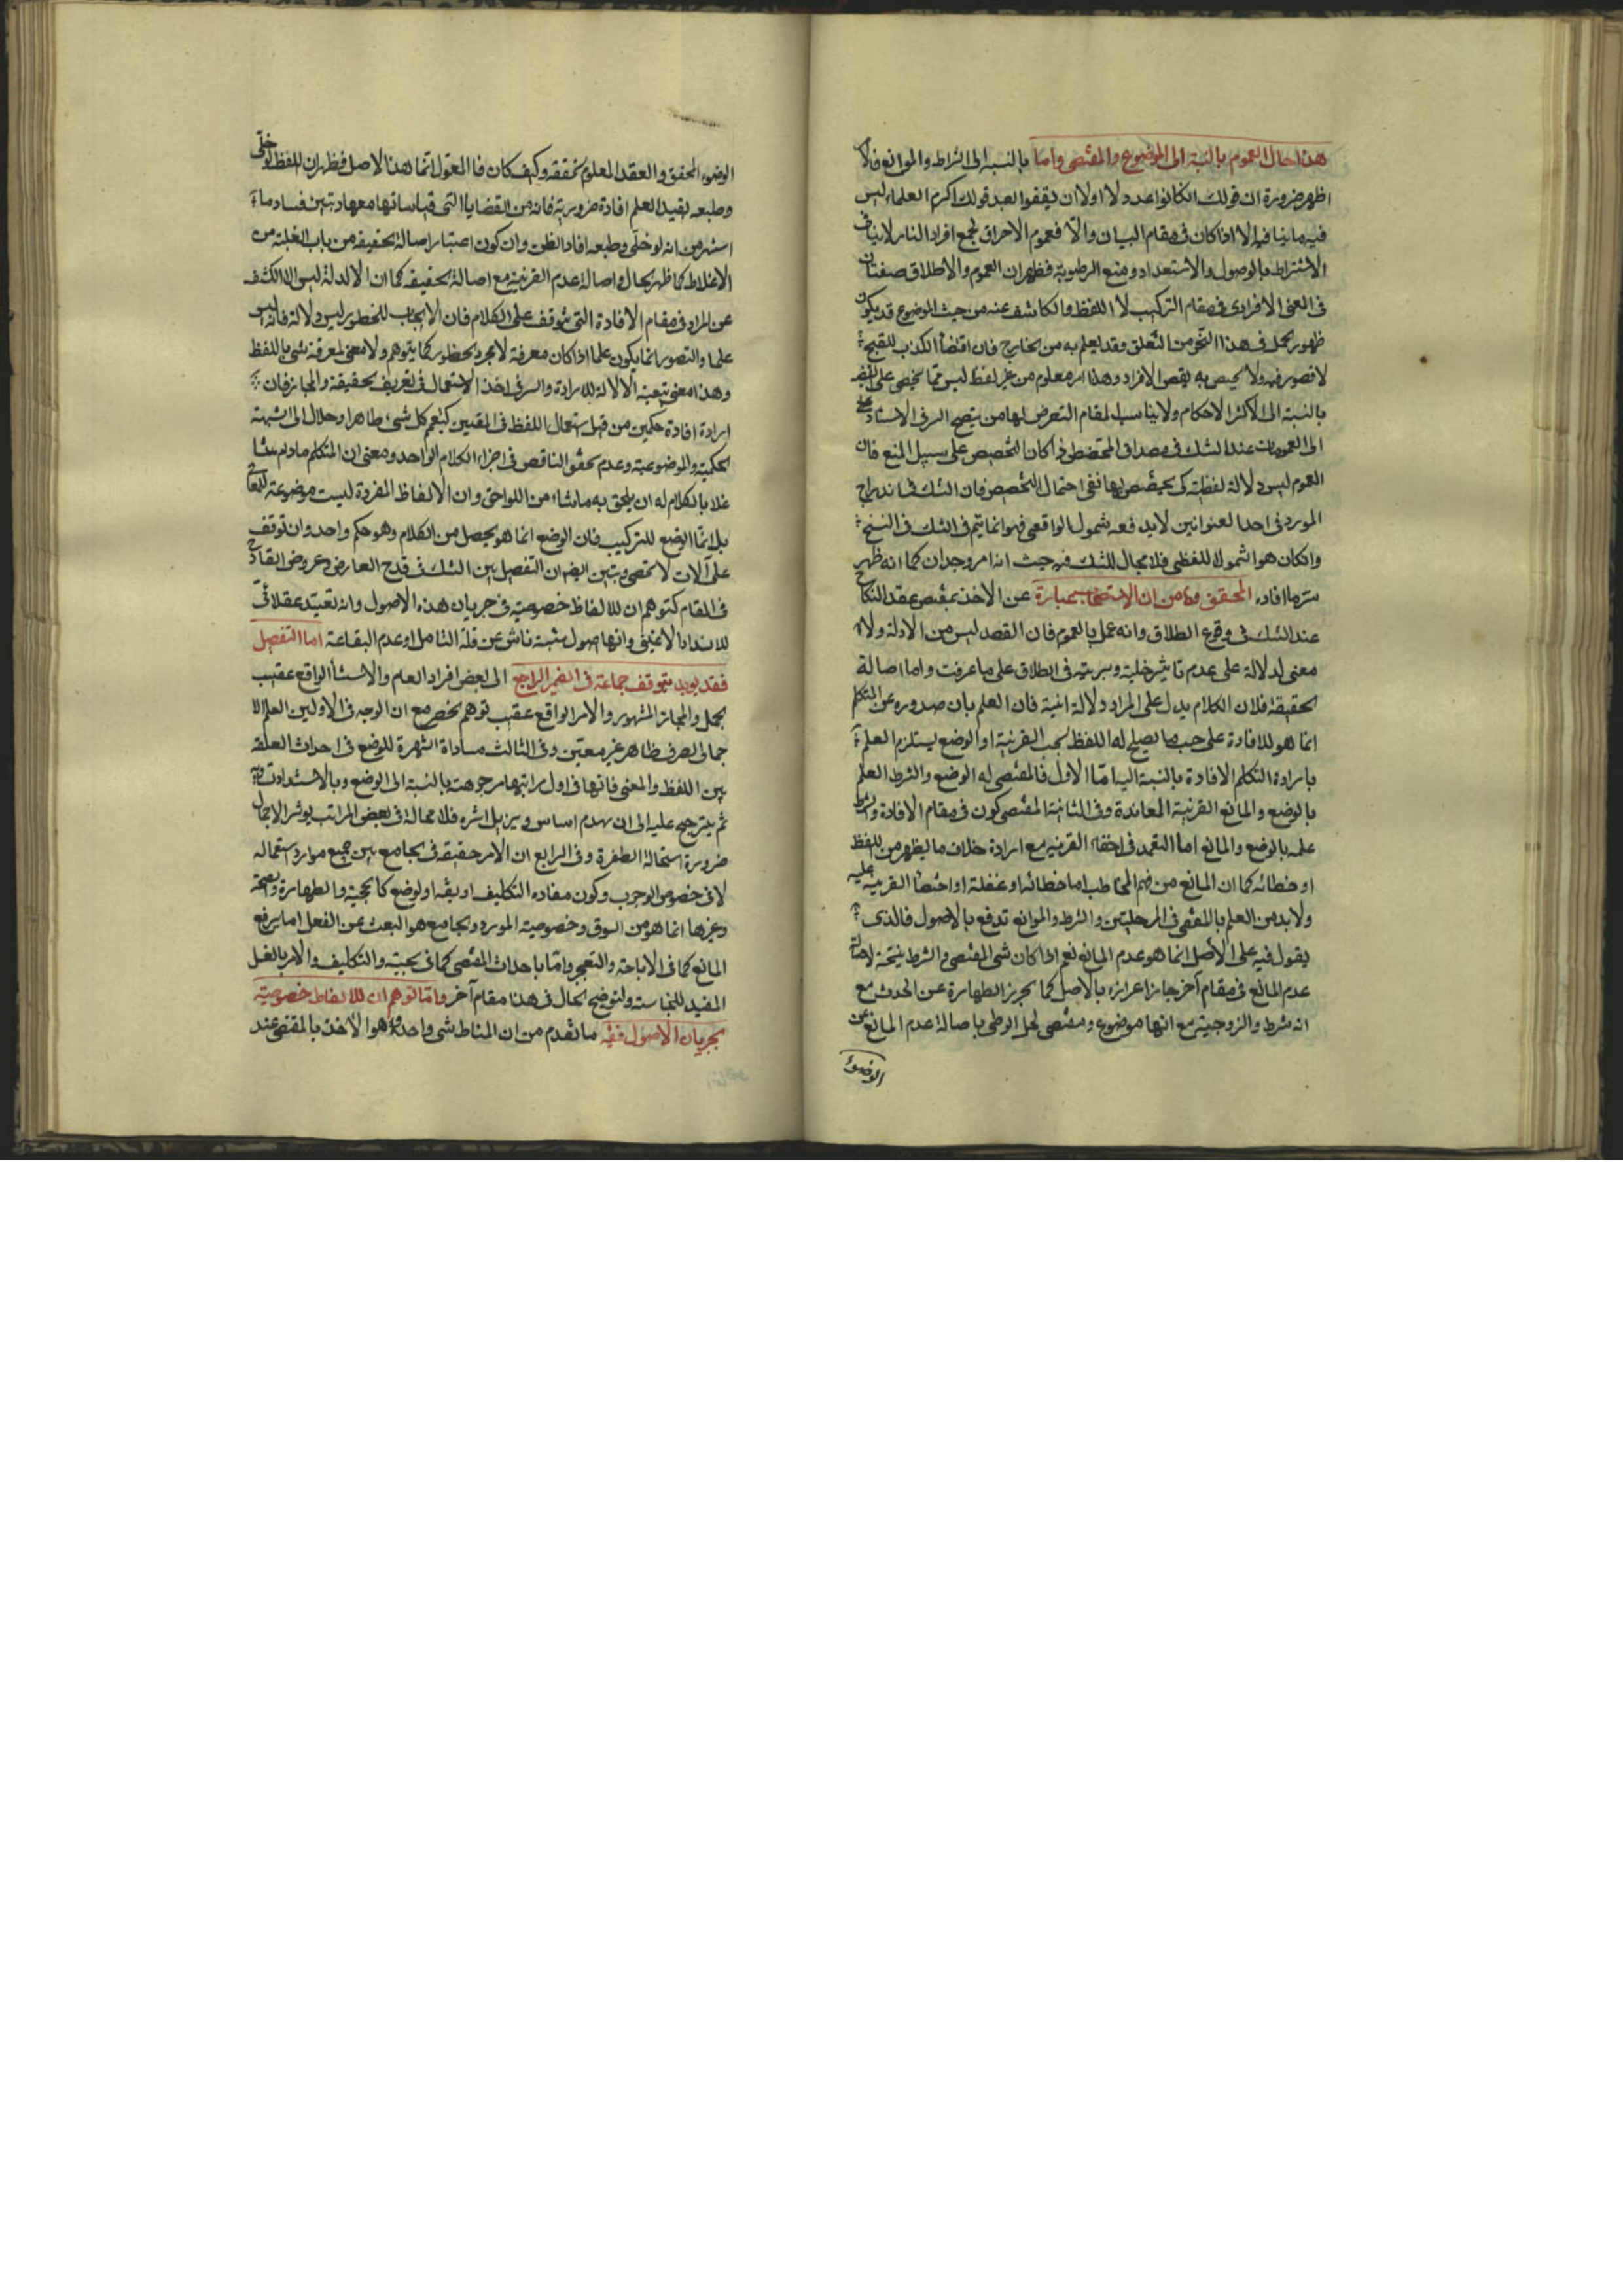 هذا حال العموم بالنسبة الى الموضوع والمقتضى واما بالنسبة الى الشرائط والموانع فلا
اظهر ضرورة ان قولك الكانوا عدولا اولا ان يقفوا العبد قولك اكرم العلماء ليس
فيه ما ينافيه الا اذا كان فى مقام البيان والّا فعموم الاحراق لجمع افراد النار لا ينافى
الاشتراط بالوصول والاستعداد ومنع الرطوبة فظهر ان العموم والاطلاق صفتان
فى المعنى الافرادى فى مقام التركيب لا اللفظ والكاشف عنه من حيث الموضوع قد يكون
ظهور الجمل فى هذا النحو من التعلق وقد يعلم به من الخارج فان اقتضاء الكذب للقبح
لا قصور فيه ولا يختص به لبعض الافراد وهذا امر معلوم من غير لفظ ليس مما يخفى على
بالنسبة الى الاكثر الاحكام ولا يناسب المقام التعرض لها من يتضح السر فى الاستناد
الى العمومات عند الشك فى مصداق المخصص اذا كان التخصيص على سبيل المنع فان
العموم ليس دلالة لفظية كى يختص بها نفى احتمال التخصيص فان الشك فى اندراج
المورد فى احد العنوانين لا يدفعه شمول الواقعى فهو انما يتم فى الشك فى النسخ
وان كان هو الشمول اللفظى فلا مجال للشك فيه حيث انه امر وجدان كما انه ظهر
سر ما افاده المحقق من ان الاستصحاب عبارة عن الاخذ بمقتضى عقد النكاح
عند الشك فى وقوع الطلاق وانه عمل بالعموم فان القصد ليس من الادلة ولا
معنى لدلالة على عدم تاثير خلية وبرية فى الطلاق على ما عرفت واما اصالة
الحقيقة فلان الكلام يدل على المراد دلالة انية فان العلم بان صدوره عن المتكلم
انما هو للافادة على حسب ما يصلح له اللفظ بحسب القرينة او الوضع يستلزم العلم
بارادة المتكلم الافادة بالنسبة اليه امّا الاول فالمقتضى له الوضع والشرط العلم
بالوضع والمانع القرينة المعاندة وفى الثانية المقتضى كون فى مقام الافادة والشرط
علمه بالوضع والمانع اما التعمد فى اخفاء القرينة مع ارادة خلاف ما يظهر من اللفظ
او خطائه كما ان المانع من فهم المخاطب اما خطائه او غفلته او اختفاء القرينة عليه
ولا بد من العلم بالمقتضى فى المرحلتين والشرط والموانع تدفع بالاصول فالذى
يقول فيه على الاصل انما هو عدم المانع نعم اذا كان شى المقتضى والشرط نتيجة لاصالة
عدم المانع فى مقام آخر جاز احرازه بالاصل كما يحرز الطهارة عن الحدث مع
انه شرط والزوجية مع انها موضوع ومقتضى لحل الوطى باصالة عدم المانع عن
الوضوء
الوضوء المحقق والعقد المعلوم تحققه وكيف كان فالمعول انما هذا الاصل فظهر ان اللفظ لو خلّى
وطبعه ليفيد العلم افادة ضرورية فانه من القضايا التى قياساتها معها وتبين فساد ما
اشتهر من انه لو خلى وطبعه افاد الظن وان كون اعتبار اصالة الحقيقة من باب الغلبة من
الاغلاط كما ظهر الحال فى اصالة عدم القرينة مع اصالة الحقيقة كما ان الادلة ليس الا الكشف
عن المراد فى مقام الافادة التى تتوقف على الكلام فان الايجاب للخطور ليس دلالة فانه ليس
علما والتصور انما يكون علما اذا كان معرفة لا مجرد الخطور كما يتوهم ولا معنى لمعرفة شى باللفظ
وهذا معنى تبعية الدلالة للارادة والسر فى اخذ الاستعمال فى تعريف الحقيقة والمجاز فان
ارادة افادة حكمين من قبل استعمال اللفظ فى المعنيين كيعم كل شى طاهر او حلال الى الشبهة
الحكمية والموضوعية وعدم تحقق الناقص فى اجزاء الكلام الواحد ومعنى ان المتكلم ما دام متشا
غلا بالكلام له ان يلحق به ما شاء من اللواحق وان الالفاظ المفردة ليست موضوعة للمعانى
بل انما الوضع للتركيب فان الوضع انما هو يحصل من الكلام وهو حكم واحد وان توقف
على آلات لا تحصى وتبين ايضا ان التفصيل بين الشك فى قدح العارض وعروض القادح
فى المقام كتوهم ان للالفاظ خصوصية فى جريان هذه الاصول وانه تعبد عقلائى
للانداد لاغينى وانها اصول مثبتة ناش عن قلة التامل او عدم البقاعة اما التفصيل
فقد يويد بتوقف جماعة فى الضمير الراجع الى بعض افراد العام والاستثناء الواقع عقيب
الجمل والمجاز المشهور والامر الواقع عقيب توهم الحظر مع ان الوجه فى الاولين العلم الا
جمالى الصرف ظاهر غير معين وفى الثالث مساواة الشهرة للوضع فى احداث العلقة
بين اللفظ والمعنى فانها فى اول مراتبها مرجوحة بالنسبة الى الوضع وبالاشتداد
ثم يترجح عليه الى ان يهدم اساس ويزيل اثره فلا محالة فى بعض المراتب يوثر الاجمال
ضرورة استحالة الطفرة وفى الرابع ان الامر حقيقة فى الجامع بين جميع موارد استعماله
لا فى خصوص الوجوب وكون مفاده التكليف او بقه او لوضع كالحجية والطهارة والصحة
وغيرها انما هو من السوق وخصوصية المورد والجامع هو البعث عن الفعل اما برفع
المانع كما فى الاباحة والتعجيز واما باحداث المقتضى كما فى الحجية والتكليف والامر بالغسل
المفيد للنجاسة ولتوضيح الحال فى هذا مقام آخر واما توهم ان للالفاظ خصوصية
بجريان الاصول ففيه ما تقدم من ان المناط شى واحد وهو الاخذ بالمقتضى عند